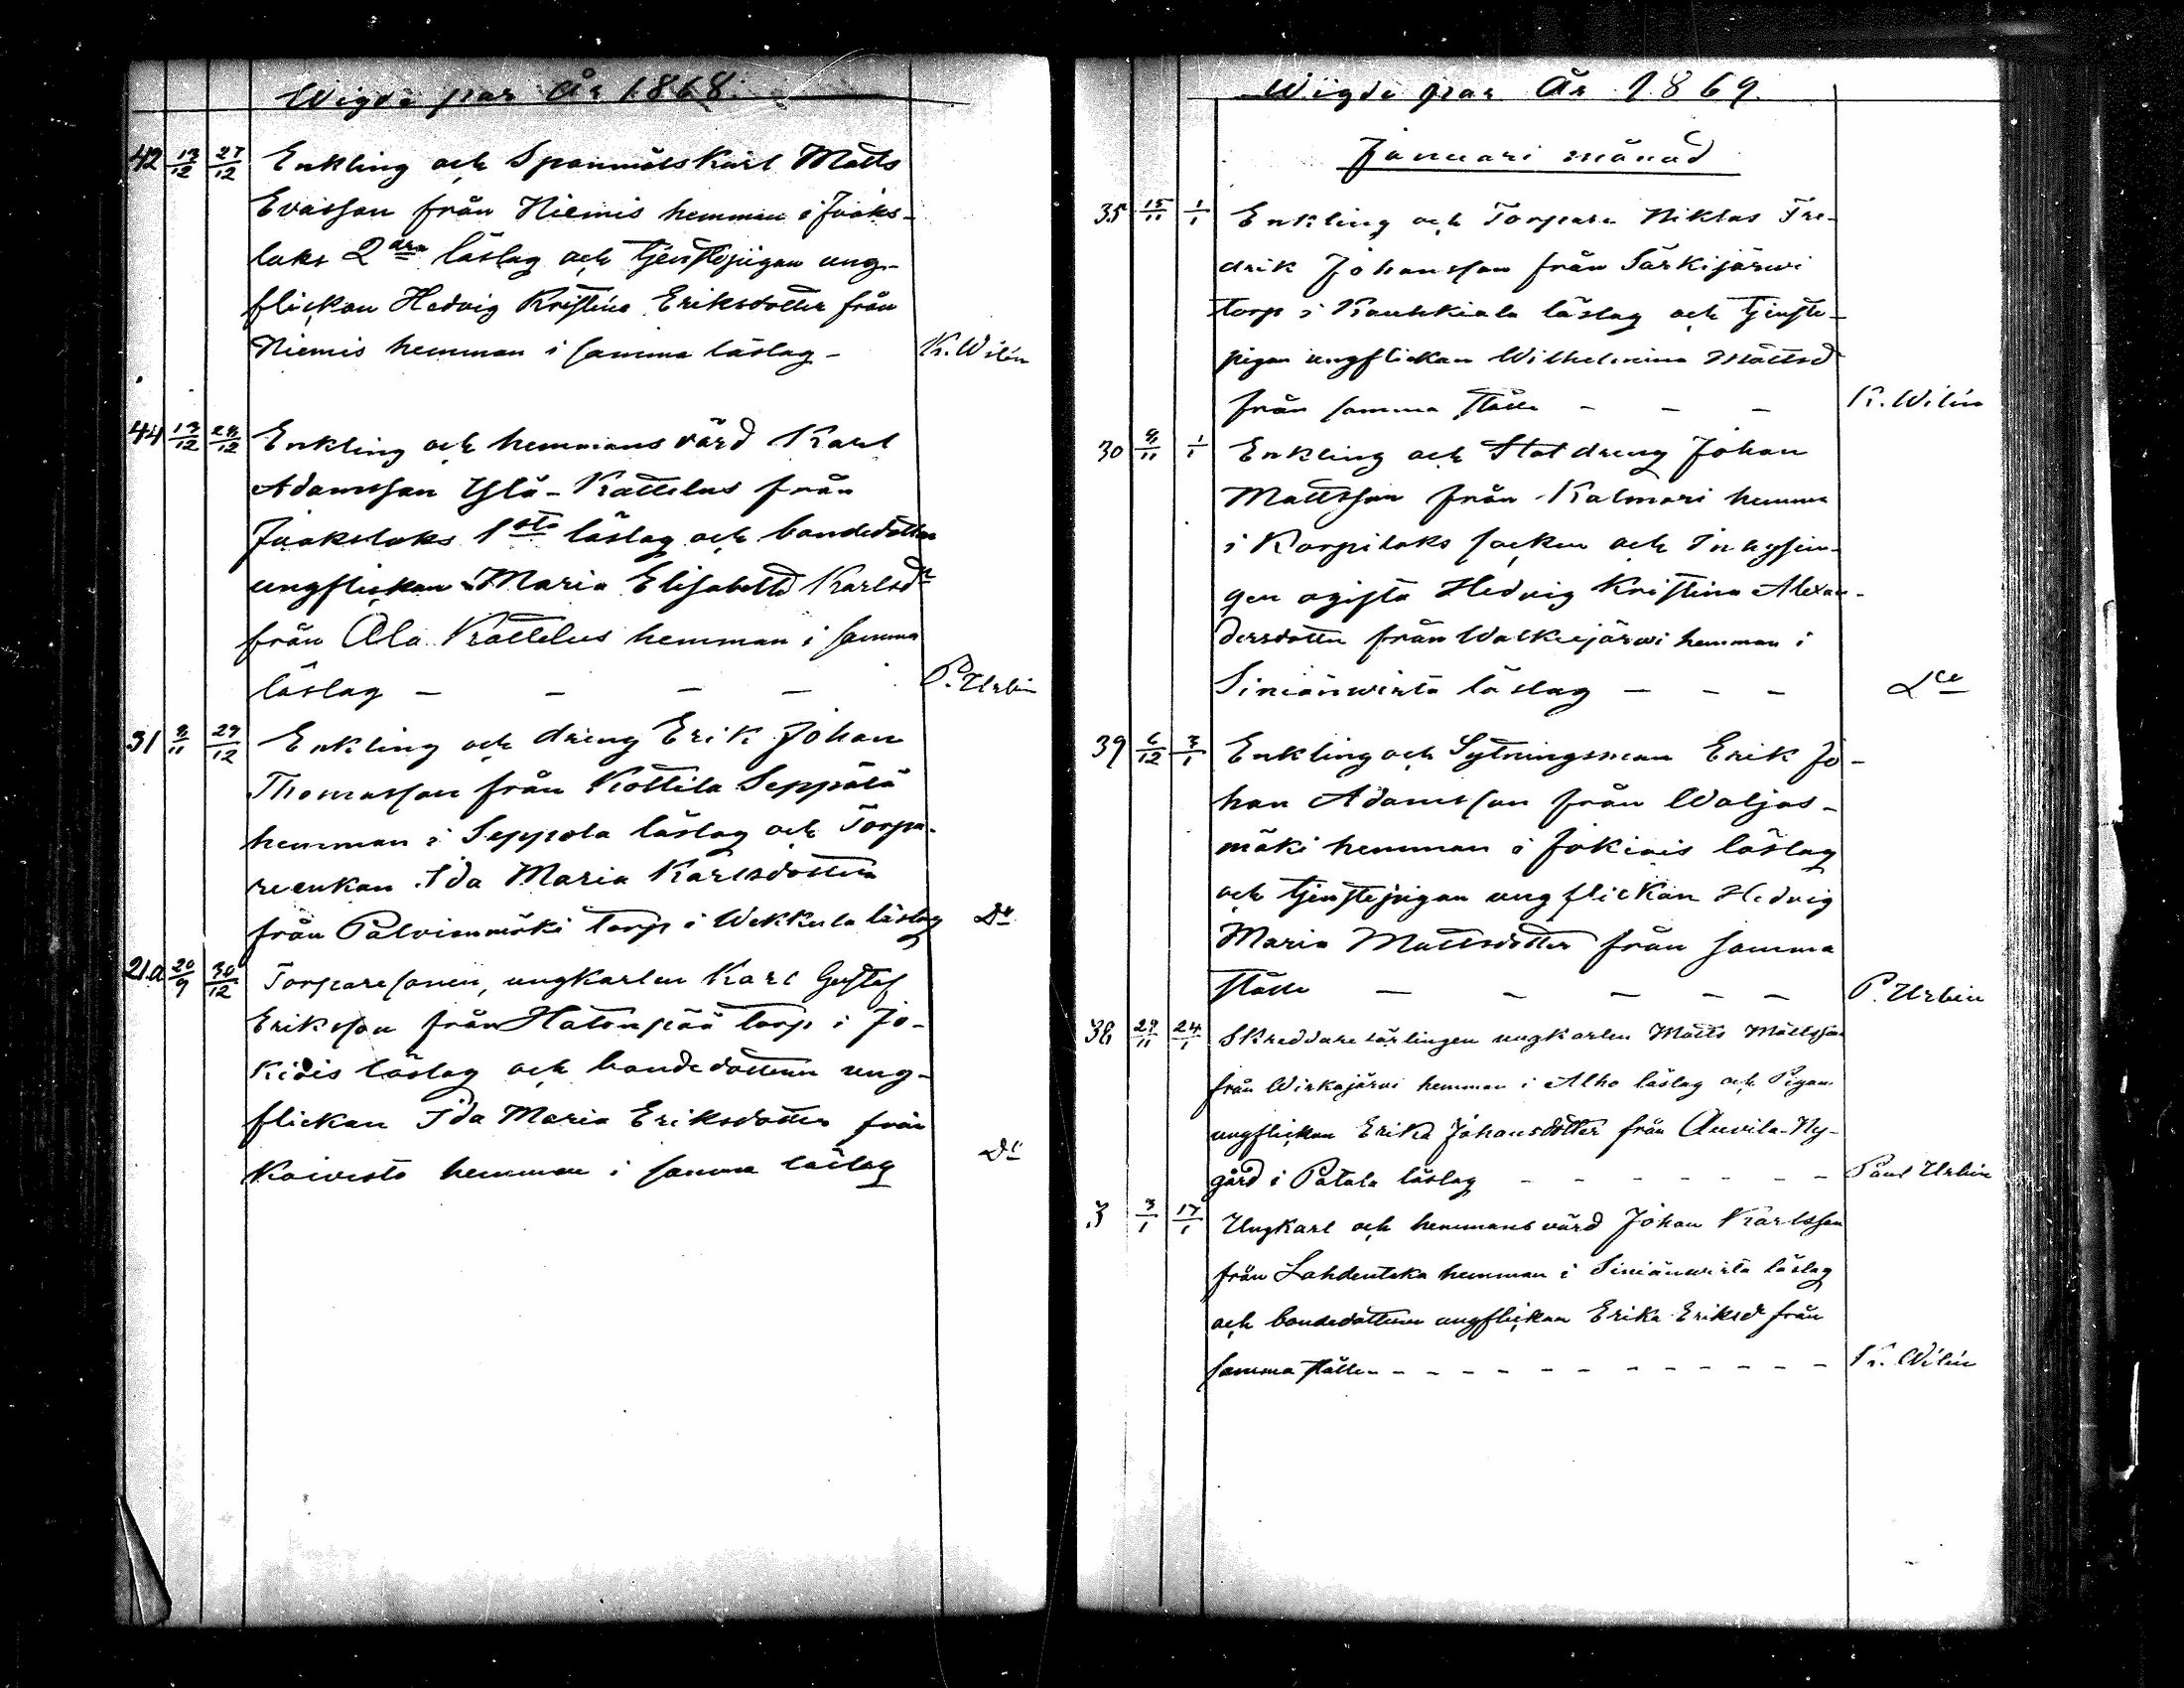 Wigde par År 1868.
42 13/12 27/12 Enkling och Spanmålskarl Matts
Evasson från Niemis hemman i Juoks-
laks 2dra läslag och tjenstepigan ung-
flickan Hedvig Kristina Eriksdotter från
Niemis hemman i samma läslag - K. Wilén
44 13/12 28/12 Enkling och hemmans värd Karl
Adamsson Ylä-Kattelus från
Juokslaks 1sta läslag och bondedottern
ungflickan Maria Elisabeth Karlsdr
från Ala Kattelus hemman i samma
läslag - - - - P. Urbin
31 8/11 29/12 Enkling och dreng Erik Johan
Thomasson från Kottila Seppälä
hemman i Seppola läslag och Torpa-
reenkan Ida Maria Karlsdotter
från Palvianmäki torp i Wekkula läslag Do
21.a 20/9 30/12 Torparesonen, ungkarlen Karl Gustaf
Eriksson från Hatanpää torp i Jo-
kiois läslag och bondedottern ung-
flickan Ida Maria Eriksdotter från
Koivisto hemman i samma läslag Do
Wigde par År 1869.
Januari månad
35 15/11 1/1 Enkling och Torpare Niklas Fre-
drik Johansson från Särkijärwi
torp i Kauhkiala läslag och tjenste-
pigan ungflickan Wilhelmina Mattsd
från samma ställe - - - K. Wilén
30 8/11 1/1 Enkling och Statdreng Johan
Mattsson från Kalmari hemman
i Korpilaks socken och Inhysin-
gen ogifta Hedvig Kristina Alexan-
dersdotter från Walkejärwi hemman i
Siniänwirta läslag - - - Do
39 6/12 3/1 Enkling och Sytningsman Erik Jo-
han Adamsson från Waljas-
mäki hemman i Jokiois läslag
och tjenstepigan ungflickan Hedvig
Maria Mattsdotter från samma
ställe - - - - - P. Urbin
38 29/11 24/1 Skreddare lärlingen ungkarlen Matts Mattsson
från Wirkajärvi hemman i Alho läslag och Pigan
ungflickan Erika Johansdotter från Auvila-Ny-
gård i Patala läslag - - - - - - - Paul Urbin
3 3/1 17/1 Ungkarl och hemmansvärd Johan Karlsson
från Lahdentaka hemman i Siniänwirta läslag
och bondedottern ungflickan Erika Eriksd från
samma ställe - - - - - - - - - - - K. Wilén